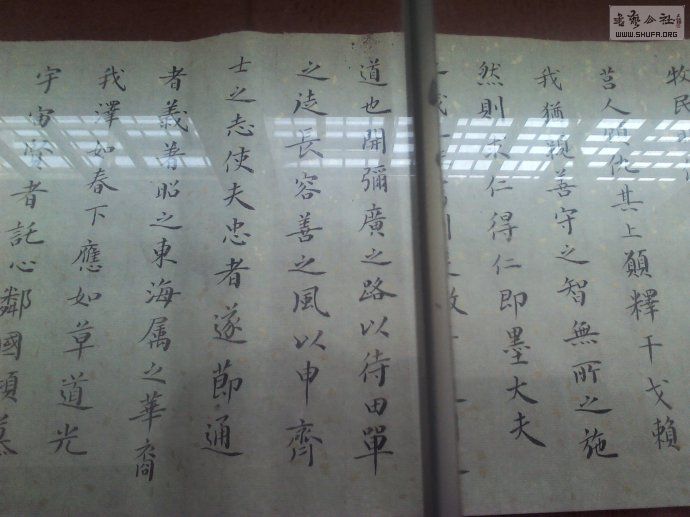 牧民
莒人顧仇其上願釋干戈賴
我猶親善守之智無所之施
然則求仁得仁即墨大夫
道也開彌廣之路以待田單
之徒長容善之風以申齊
士之志使夫忠者遂節通
者義著昭之東海属之華裔
我澤如春下應如草道光
宇宙賢者託心鄰國傾慕
書藝公社
WWW.SHUFA.ORG